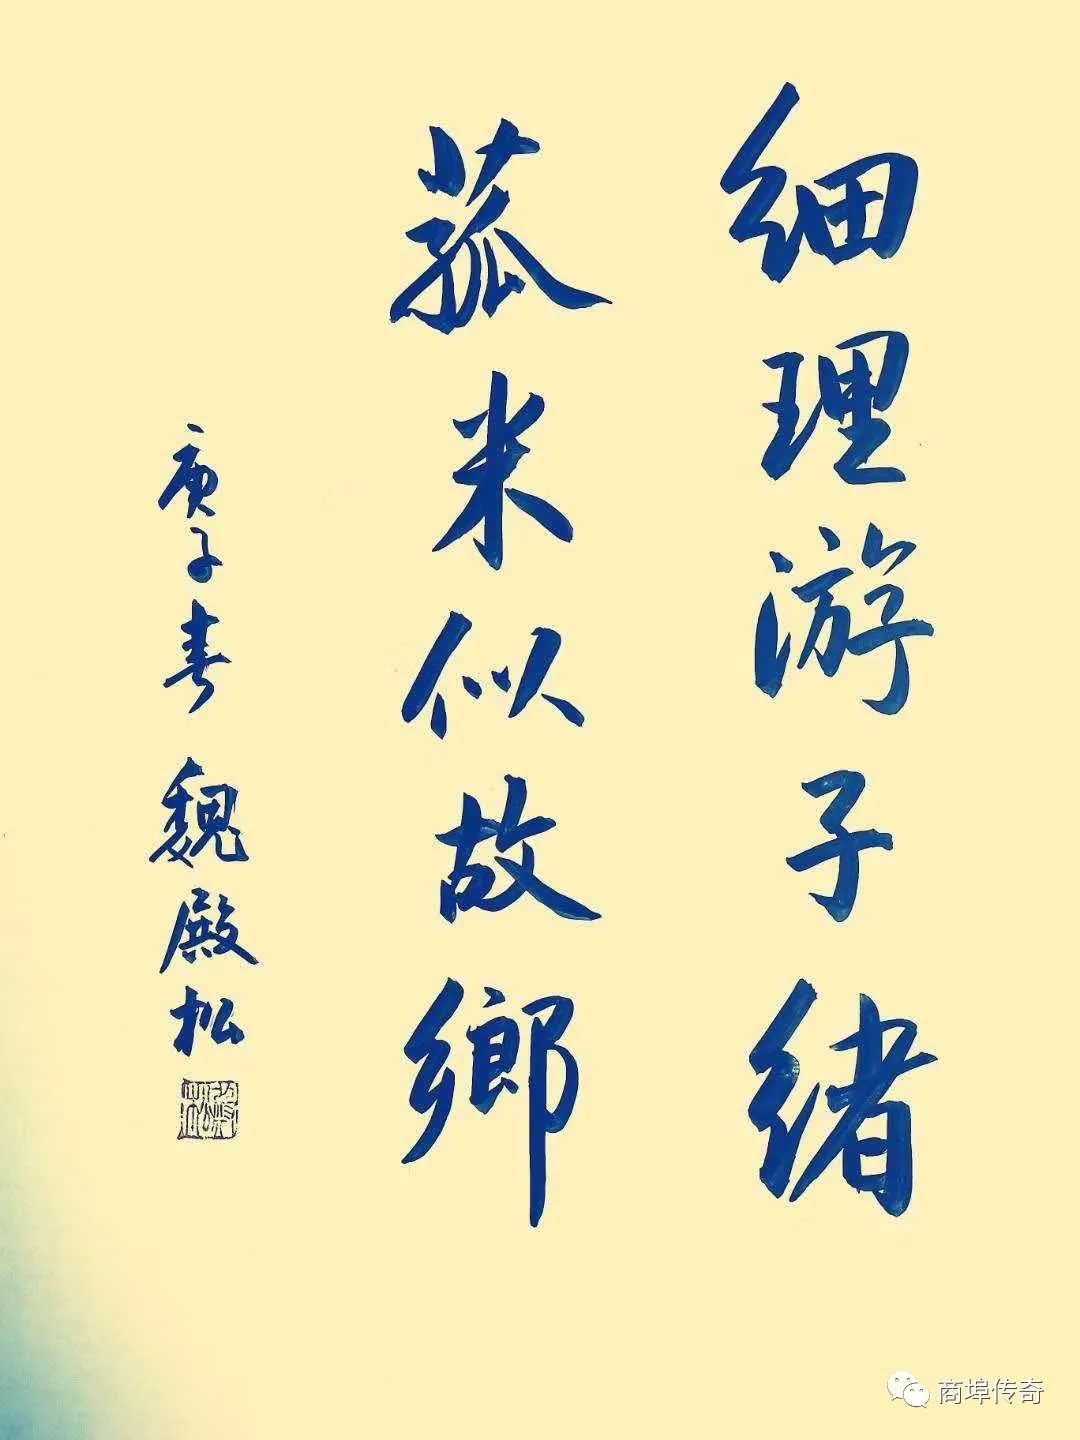 细理游子绪
菰米似故鄉
庚子春 魏殿松
商埠传奇